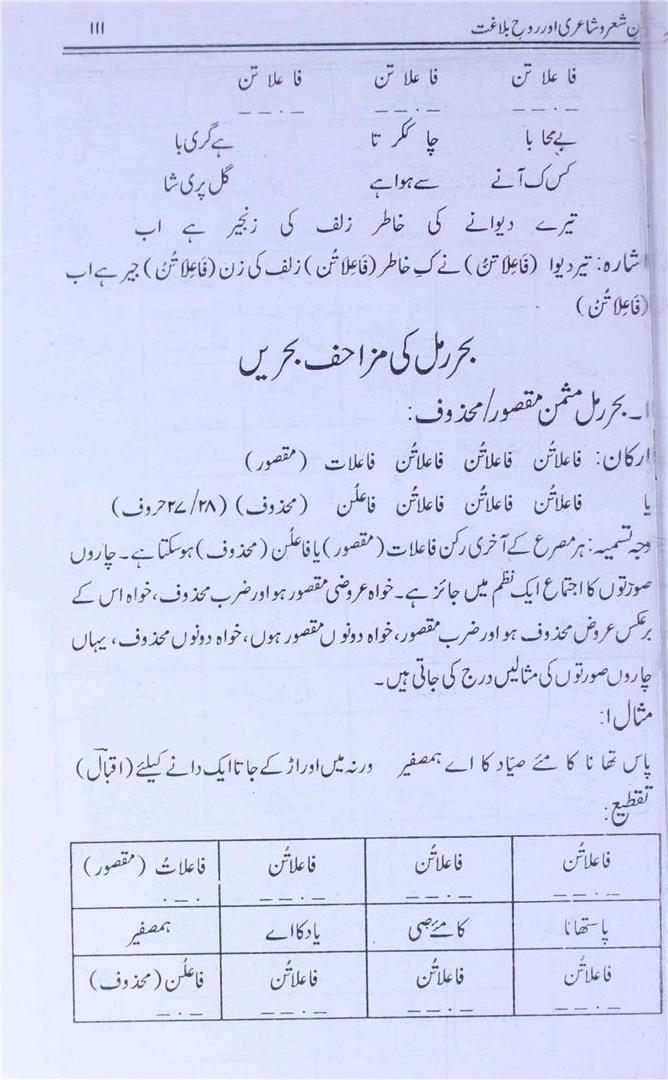 نِ شعر و شاعری اور روحِ بلاغت ۱۱۱
فا علا تن فا علا تن فا علا تن
_ . _ _ _ . _ _ _ . _ _
بے محا با چا ککر تا ہے گری با
کس ک آنے سے ہوا ہے گل پری شا
تیرے دیوانے کی خاطر زلف کی زنجیر ہے اب
اشارہ: تیر دیوا (فَاعِلَاتنُ) نے کِ خاطر (فَاعِلَاتُن) زلف کی زن (فَاعِلَاتُنْ) جیر ہے اب
(فَاعِلَاتُنْ)
بحر رمل کی مزاحف بحریں
۱۔ بحر رمل مثمن مقصور/محذوف:
ارکان: فاعلاتُن فاعلاتُن فاعلاتُن فاعلات (مقصور)
یا فاعلاتُن فاعلاتُن فاعلاتُن فاعلُن (محذوف) (۲۷/۲۸ حروف)
وجہ تسمیہ: ہر مصرع کے آخری رکن فاعلات (مقصور) یا فاعلُن (محذوف) ہوسکتا ہے۔ چاروں
صورتوں کا اجتماع ایک نظم میں جائز ہے۔ خواہ عروضی مقصور ہو اور ضرب محذوف، خواہ اس کے
برعکس عروض محذوف ہو اور ضرب مقصور، خواہ دونوں مقصور ہوں، خواہ دونوں محذوف، یہاں
چاروں صورتوں کی مثالیں درج کی جاتی ہیں۔
مثال ۱:
پاس تھا نا کا مئے صیّاد کا اے ہمصفیر ورنہ میں اور اڑ کے جاتا ایک دانے کیلئے (اقبالؔ)
تقطیع:
فاعلاتُن فاعلاتُن فاعلاتُن فاعلاتُ (مقصور)
_ . _ _ _ . _ _ _ . _ _ . _ .
پا ستھا نا کا مئے صی یا د کا اے ہمصفیر
فاعلاتُن فاعلاتُن فاعلاتُن فاعلُن (محذوف)
_ . _ _ _ . _ _ _ . _ _ _ . _